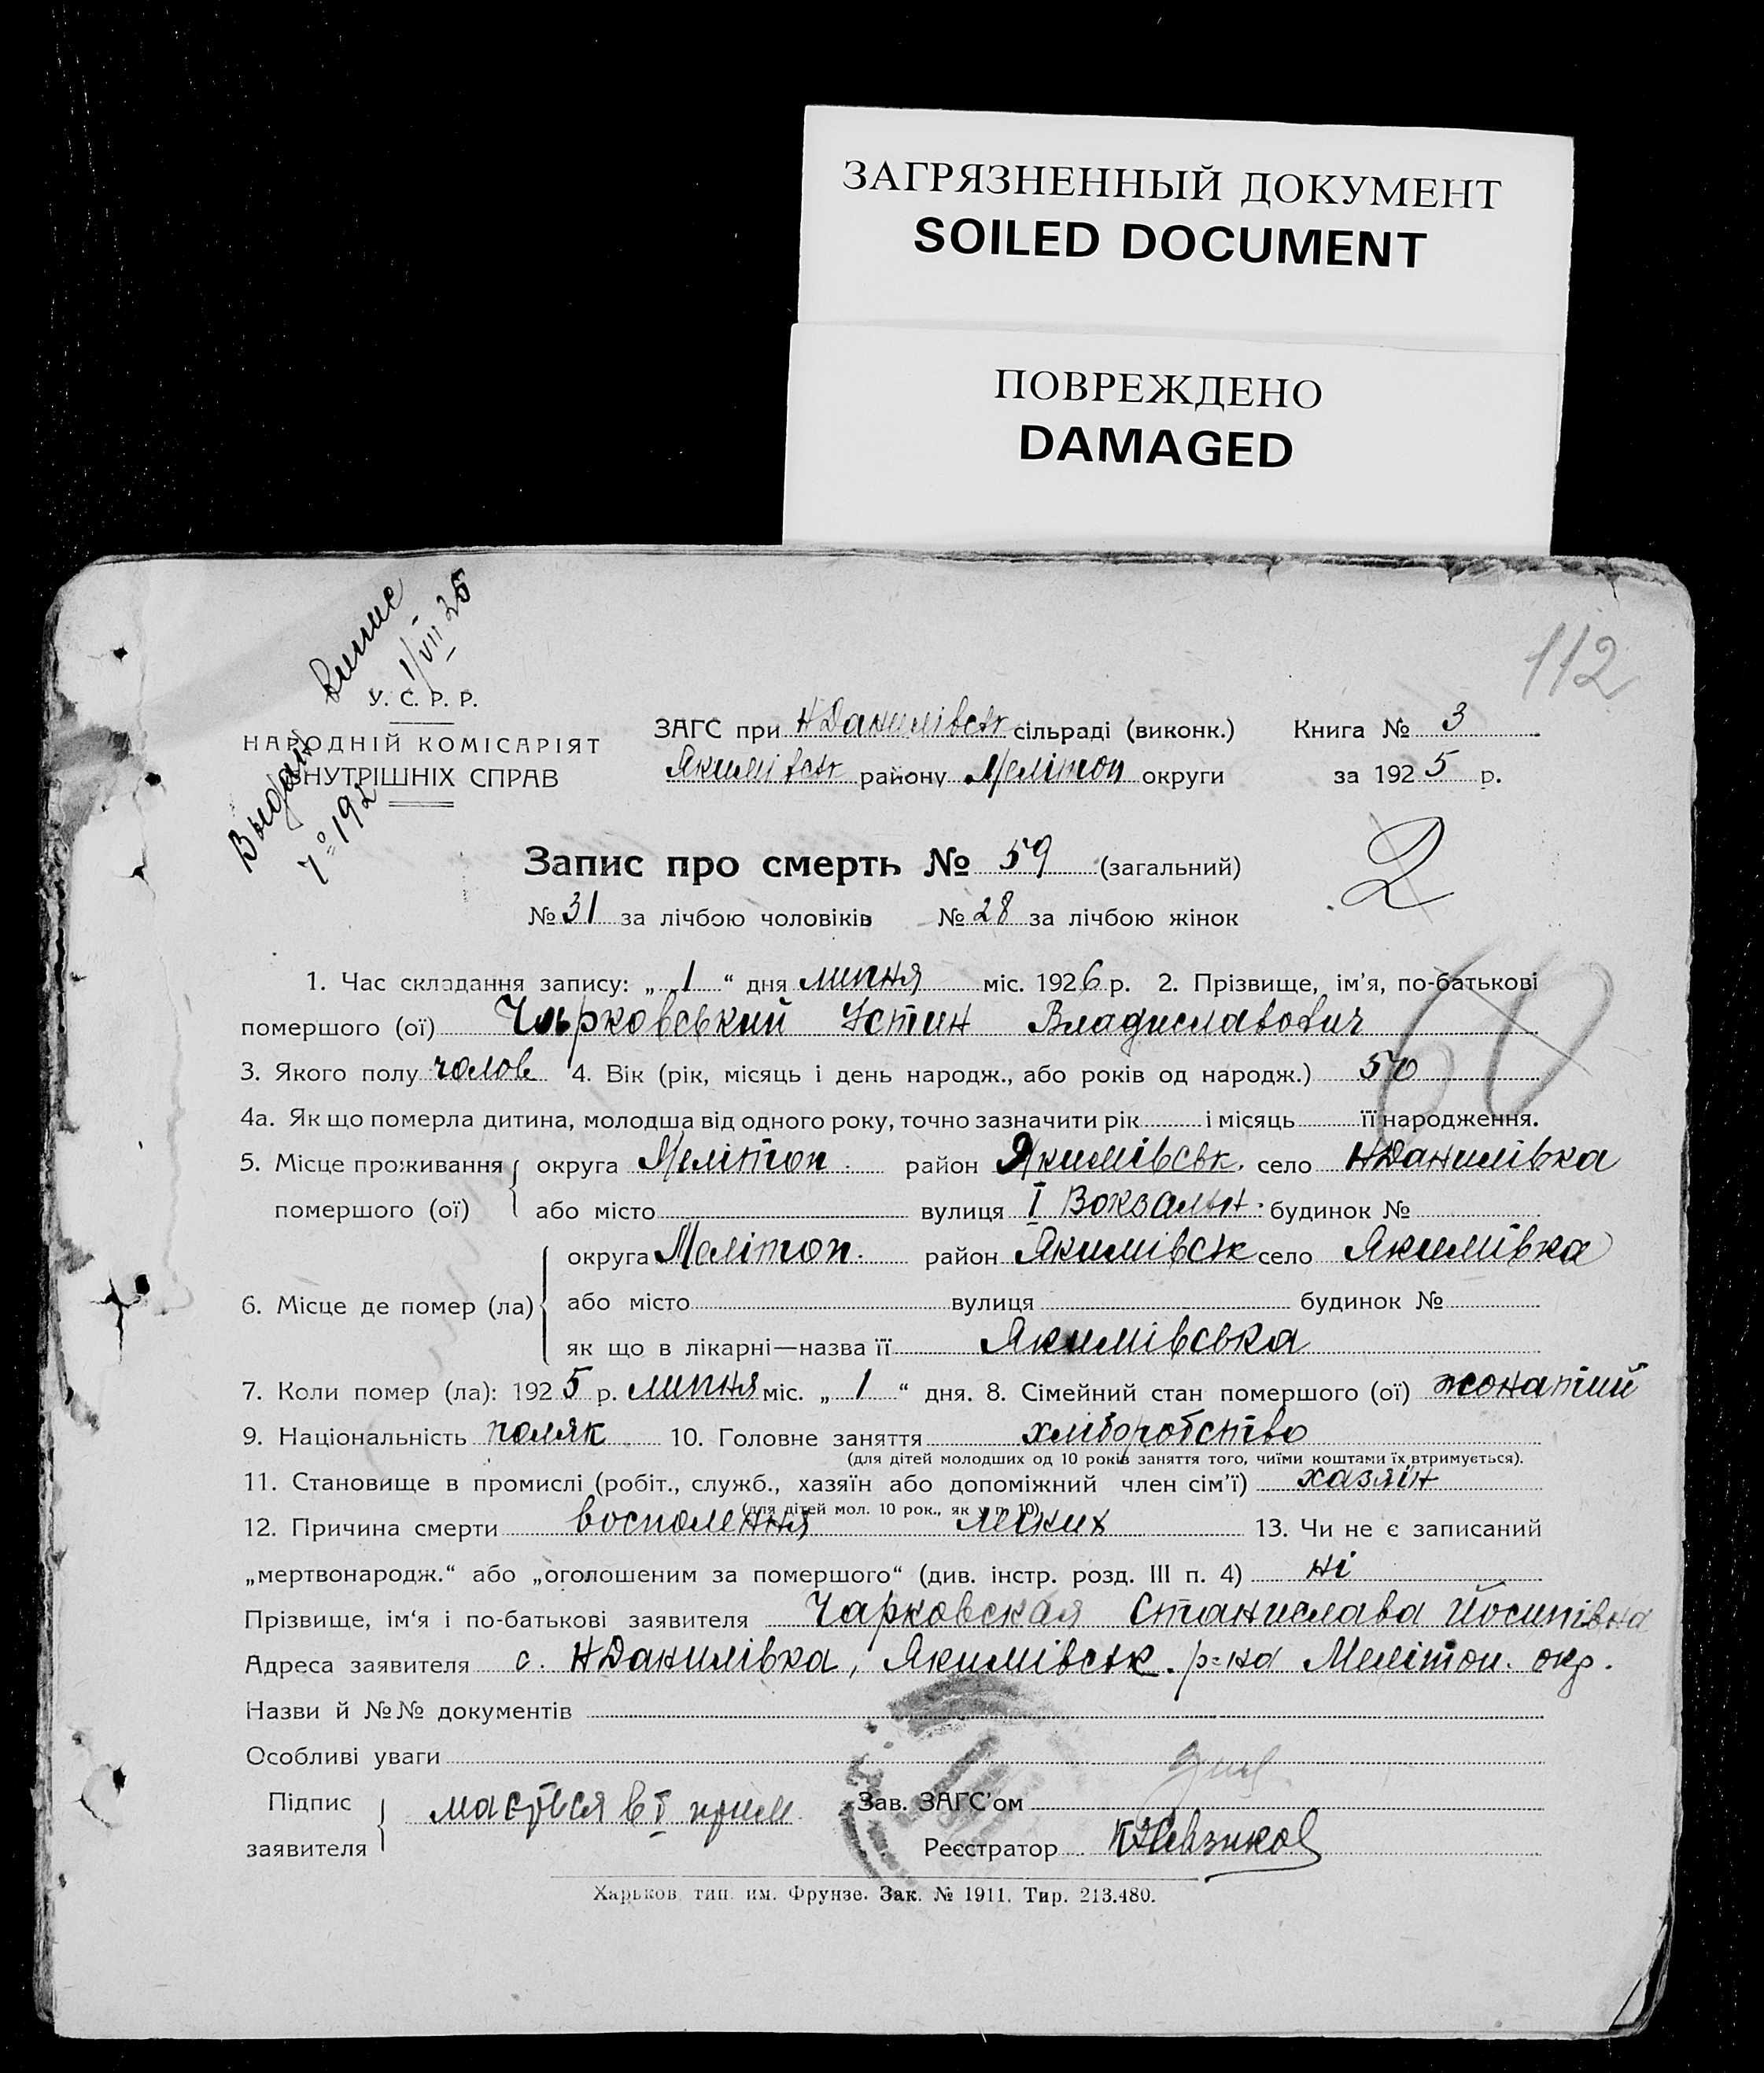 ЗАГРЯЗНЕННЫЙ ДОКУМЕНТ
SOILED DOCUMENT
ПОВРЕЖДЕНО
DAMAGED
112
Выдан випис
1/VII 25
192
У. С. Р. Р.
НАРОДНІЙ КОМІСАРІЯТ
ВНУТРІШНІХ СПРАВ
ЗАГС при НДанилівськ сільраді (виконк.) Книга № 3
Якимівськ району Мелітоп округи за 1925 р.
Запис про смерть № 59 (загальний)
2
№ 31 за лічбою чоловіків № 28 за лічбою жінок
1. Час складання запису: „ 1 “ дня липня міс. 1926 р. 2. Прізвище, ім'я, по-батькові
помершого (ої) Чарковський Устин Владиславович
3. Якого полу чолов 4. Вік (рік, місяць і день народж., або років од народж.) 50
4а. Як що померла дитина, молодша від одного року, точно зазначити рік і місяць її народження.
5. Місце проживання округа Мелітоп. район Якимівськ. село НДанилівка
помершого (ої) або місто вулиця І Вокзальн. будинок №
округа Мелітоп. район Якимівськ село Якимівка
6. Місце де помер (ла) або місто вулиця будинок №
як що в лікарні—назва її Якимівська
7. Коли помер (ла): 1925 р. липня міс. „ 1 “ дня. 8. Сімейний стан помершого (ої) жонатий
9. Національність поляк 10. Головне заняття хліборобство
(для дітей молодших од 10 років заняття того, чиїми коштами їх втримується).
11. Становище в промислі (робіт., служб., хазяїн або допоміжний член сім'ї) хазяїн
(для дітей мол. 10 рок., як у п. 10)
12. Причина смерти восполення легких 13. Чи не є записаний
„мертвонародж.“ або „оголошеним за помершого“ (див. інстр. розд. III п. 4) ні
Прізвище, ім'я і по-батькові заявителя Чарковская Станислава Йосипівна
Адреса заявителя с. НДанилівка, Якимівськ. р=на Мелітоп. окр.
Назви й №№ документів
Особливі уваги
Підпис заявителя мається в І прим. Зав. ЗАГС'ом
Реєстратор
Харьков, тип. им. Фрунзе. Зак. № 1911. Тир. 213.480.